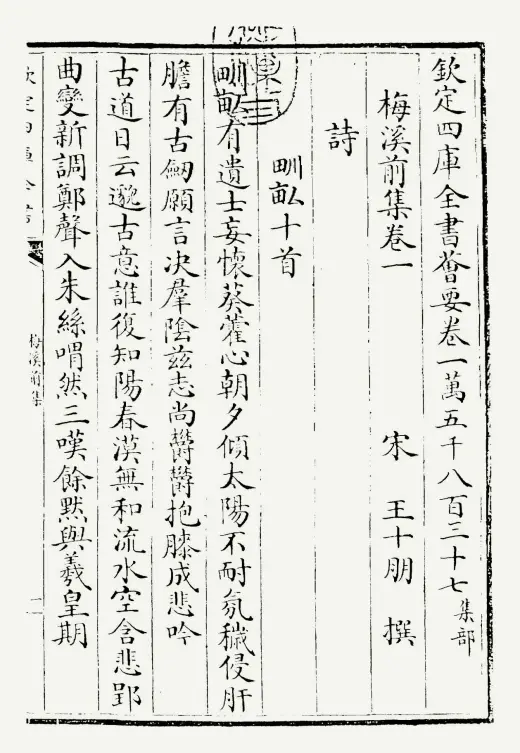 欽定四庫全書薈要卷一萬五千八百三十七集部
梅溪前集卷一
宋 王十朋 撰
詩
甽畝十首
甽畝有遺士妄懷葵藿心朝夕傾太陽不耐氛穢侵肝
膽有古劒願言决羣陰兹志尚鬱鬱抱膝成悲吟
古道日云邈古意誰復知陽春漠無和流水空含悲郢
曲變新調鄭聲入朱絲喟然三嘆餘黙與羲皇期
梅溪前集